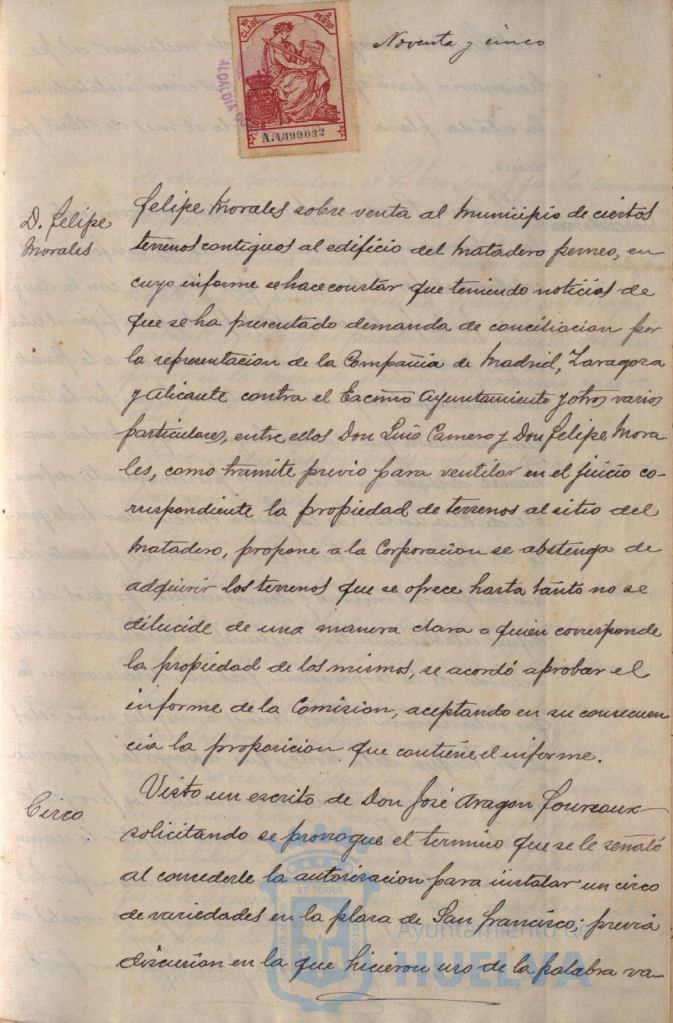 10ª CLASE
2 PESETAS
ALCALDÍA
A.4399032
Noventa y cinco
D. Felipe
Morales
Felipe Morales sobre venta al Municipio de ciertos
terrenos contiguos al edificio del Matadero ferneo, en
cuyo informe se hace constar que teniendo noticias de
que se ha presentado demanda de conciliacion por
la representacion de la Compañia de Madrid, Zaragoza
y Alicante contra el Excmo Ayuntamiento y otros varios
particulares, entre ellos Don Luis Camero y Don Felipe Mora-
les, como tramite previo para ventilar en el juicio co-
rrespondiente la propiedad de terrenos al sitio del
Matadero, propone a la Corporacion se abstenga de
adquirir los terrenos que se ofrece hasta tanto no se
dilucide de una manera clara a quien corresponde
la propiedad de los mismos, se acordó aprobar el
informe de la Comision, aceptando en su consecuen
cia la proposicion que contiene el informe.
Circo
Visto un escrito de Don José Aragon Foureaux
solicitando se prorrogue el termino que se le señaló
al concederle la autorizacion para instalar un circo
de variedades en la plaza de San Francisco; previa
discusion en la que hicieron uso de la palabra va-
Ayuntamiento de
HUELVA